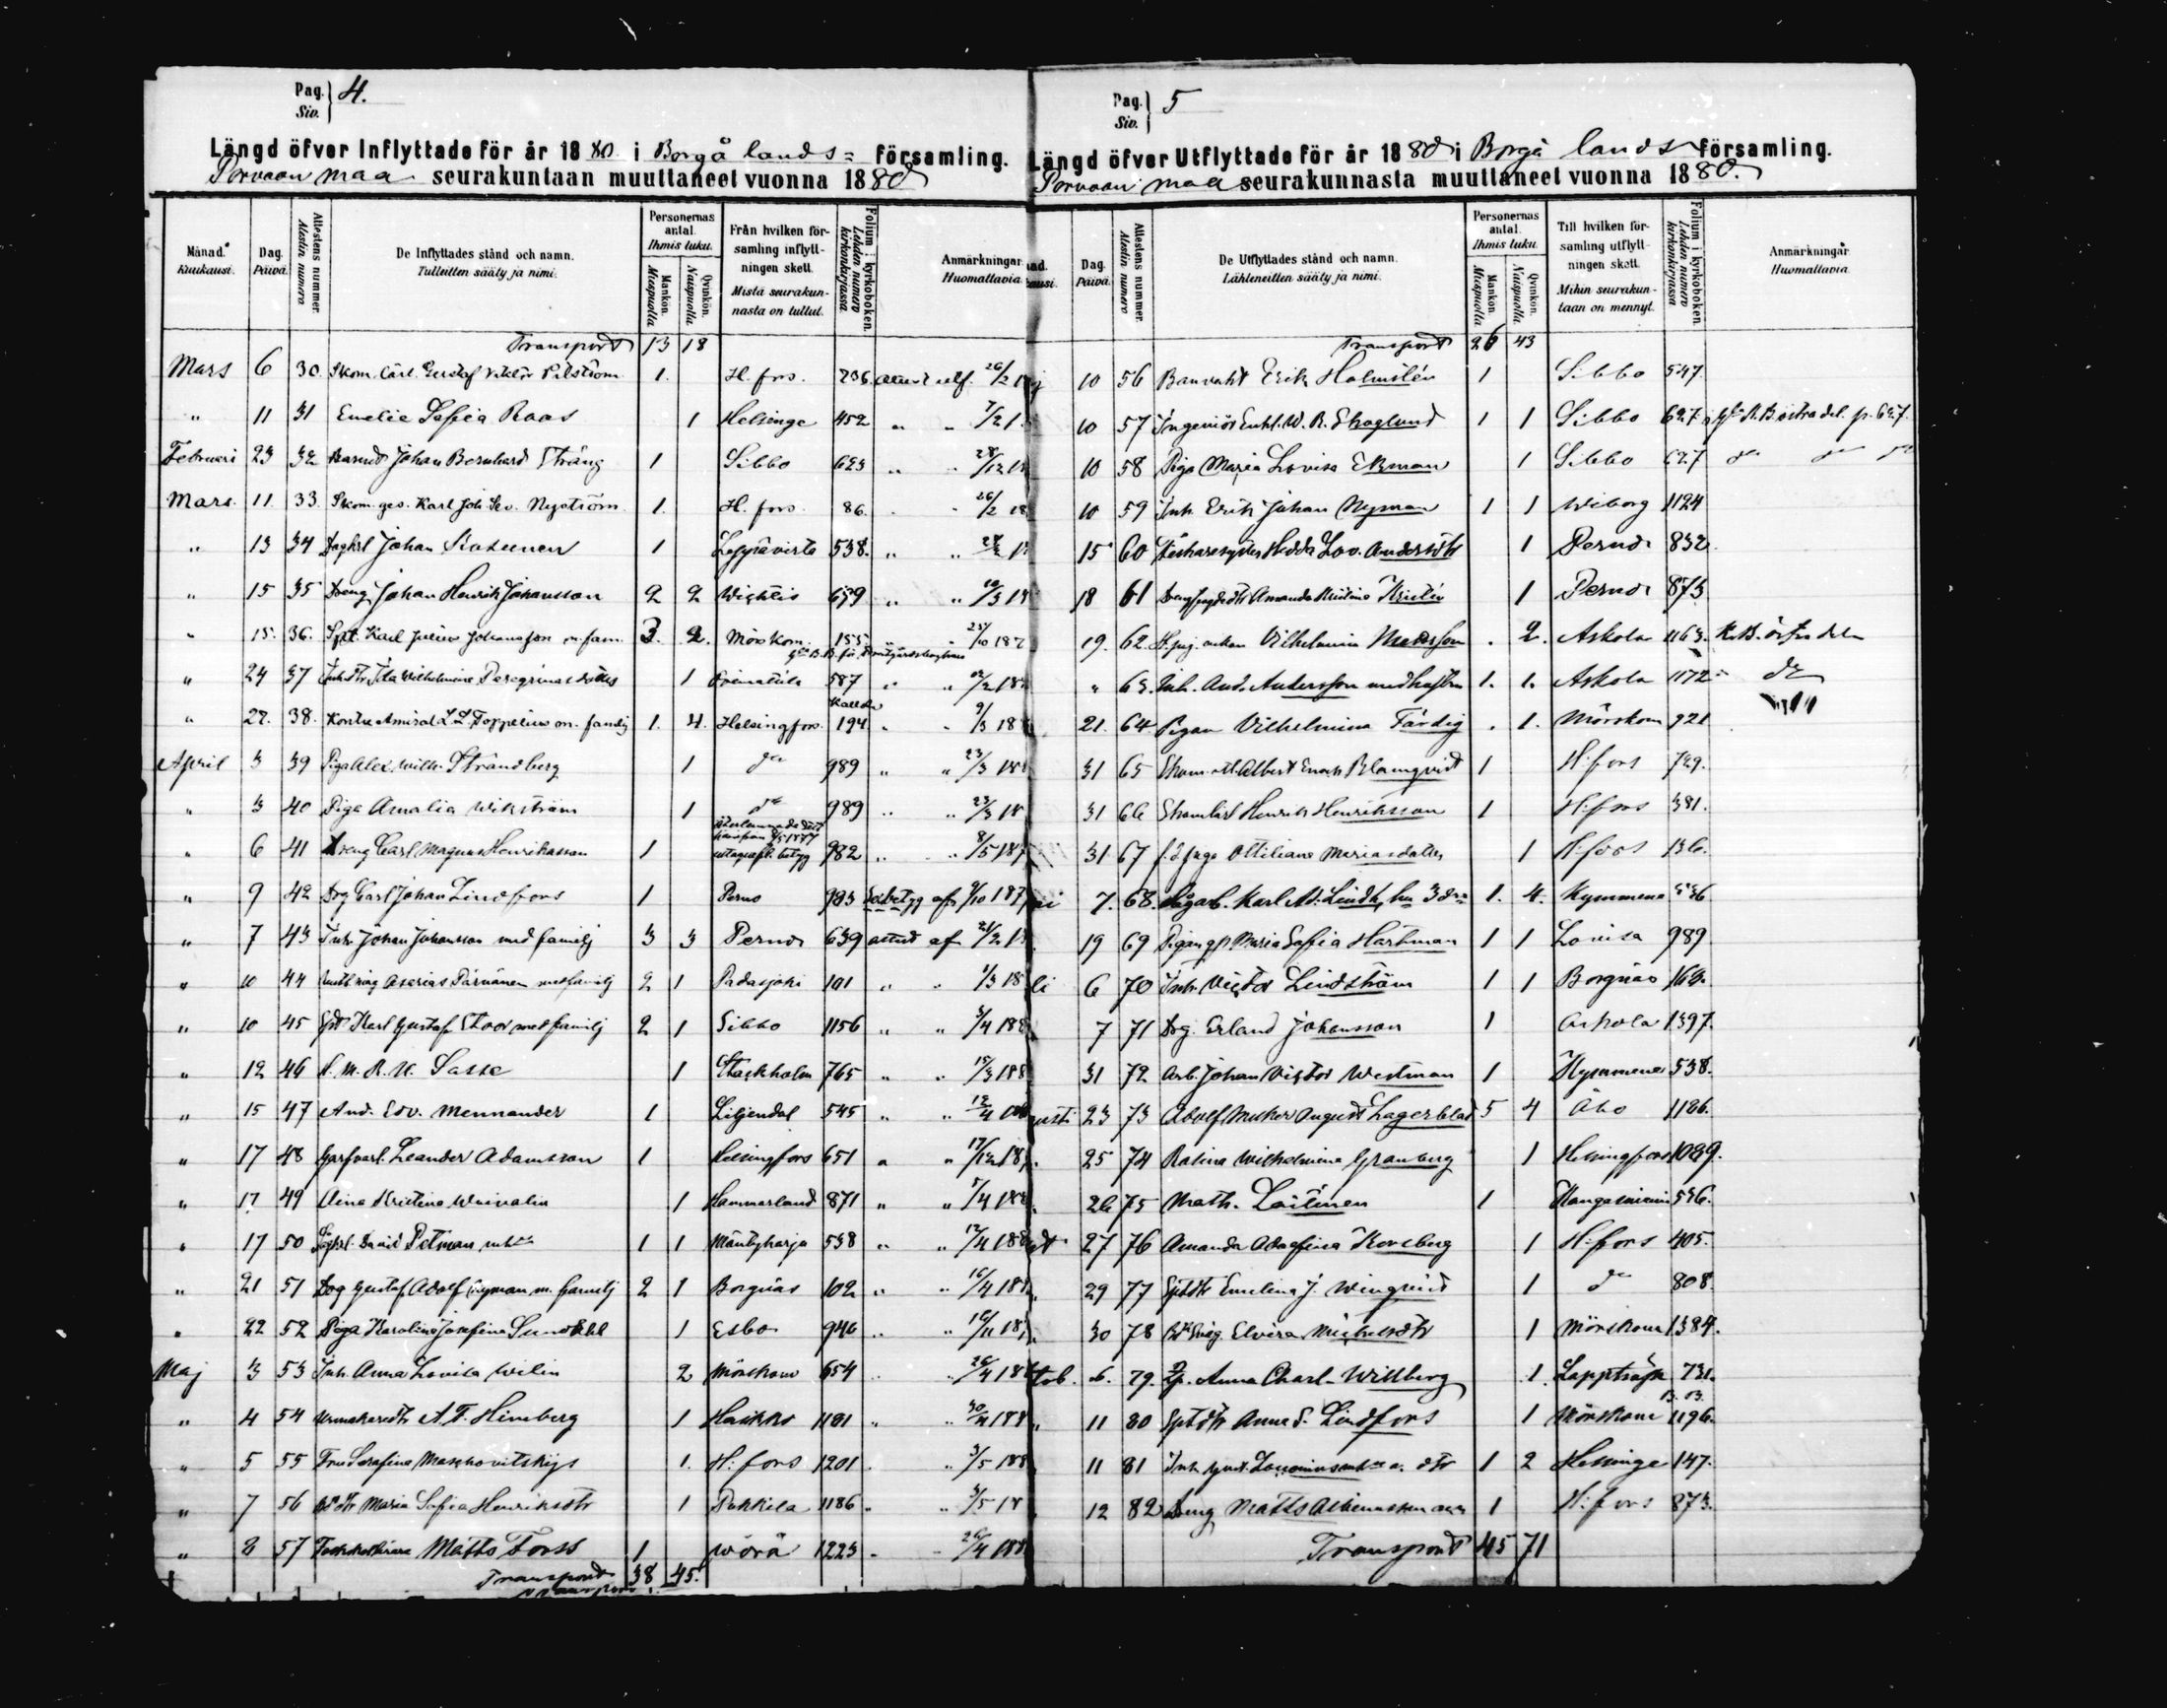 Pag. Siv. } 4.
Längd öfver Inflyttade för år 1880. i Borgå lands= församling.
Porvoon maa seurakuntaan muuttaneet vuonna 1880
Månad. Kuukausi. Dag. Päivä. Attestens nummer. Alestin numero De Inflyttades stånd och namn. Tulleitten sääty ja nimi. Personernas antal. Ihmis luku. Mankön. Miespuolia Qvinkön. Naispuolia Från hvilken församling inflyttningen skett. Mistä seurakunnasta on tullut. Folium i kyrkoboken. Lehden numero kirkonkirjassa. Anmärkningar. Huomattavia.
Transport 13 18
Mars 6 30. Skom. Carl Gustaf Viktor Pilström 1. H. fors. 236. attest utf. 26/2
" 11 31 Emelie Sofia Roos 1 Helsinge 452 " " 7/2
Februari 23 32 Johan Bernhard Sträng 1 Sibbo 623 " " 28/12
Mars. 11. 33. Skom. ges. Karl Joh. Nyström 1. H. fors. 86. 26/2 18
" 13 34 Dagkrl Johan 1 Leppävirta 538. " "
" 15 35 Dreng Johan Henrik Johansson 2 2 Wichtis 659 " " 10/3 18
" 15. 36. Karl Julius Johansson m. fam. 3. 2. Mörskom. 155. 25/10 187
" 24 37 Ida Wilhelmina Peregrinusdotter 1 587 " "
" 22. 38. Kontre Amiral Toppelius m. familj 1. 4. Helsingfors. 194 " " 9/3 188
April 3 39 Piga Alex. Wilh. Strandberg 1 do 989 " " 23/3 188
" 3 40 Piga Amalia Wikström 1 do 989 " " 23/3 18
" 6 41 Dreng Carl Magnus Henriksson 1 982 " " 8/5 187
" 9 42 Drg Carl Johan Lindfors 1 Perno 983 af 9/10 187
" 7 43 Inh. Johan Johansson med familj 3 3 Perno 639 attest af 21/2
" 10 44 Aserias Pärnänen med familj 2 1 Padasjoki 101 " " 1/3 18
" 10 45 Karl Gustaf Stoor med familj 2 1 Sibbo 1156 " " 3/4 188
" 12 46 Sasse 1 Stockholm 765 " " 15/3 188
" 15 47 And. Edv. Mennander 1 Liljendal 545 " " 12/4
" 17 48 Garfvarl. Leander Adamsson 1 Helsingfors 651 " " 17/12 18
" 17 49 Aina Kristina 1 Hammarland 871 " " 5/4 188
" 17 50 Petman 1 1 Mäntyharju 538 " " 12/4 188
" 21 51 Drg Gustaf Adolf Nyman m. familj 2 1 Borgnäs 102 " " 16/4 188
" 22 52 Piga Karolina Josefina Sundell 1 Esbo 946 " " 16/11 18
Maj 3 53 Inh. Anna Lovisa Wilin 2 Mörskom 654 " " 26/4 18
" 4 54 A. F. Himberg 1 Haikko 1181 " " 188
" 5 55 Fru Serafina Maschovitskijs 1. H: fors 1201 " " 3/5 188
" 7 56 Maria Sofia Henriksdtr 1 Pukkila 1186 " " 3/5 18
" 8 57 Matts Forss 1 Wörå 1223 - - 26/4 188
Transport 38 45.
Pag. Siv. } 5
Längd öfver Utflyttade för år 1880 i Borgå lands församling.
Porvoon maa seurakunnasta muuttaneet vuonna 1880.
Dag. Päivä. Attestens nummer. Alestin numero De Utflyttades stånd och namn. Lähteneitten sääty ja nimi. Personernas antal. Ihmis luku. Mankön. Miespuolia Qvinkön. Naispuolia Till hvilken församling utflyttningen skett. Mihin seurakuntaan on mennyt. Folium i kyrkoboken. Lehden numero kirkonkirjassa Anmärkningar. Huomattavia.
Transport 26 43
10 56 Banvakt Erik Holmstén 1 Sibbo 547.
10 57 Ingeniör W. R. Skoglund 1 1 Sibbo 627 östra del. p. 627.
10 58 Piga Maria Lovisa Ekman 1 Sibbo 627 do do do
10 59 Inh. Erik Johan Nyman 1 1 Wiborg 1124
15 60 Hedda Lov. Andersdtr 1 Perno 832
18 61 Amanda Kristina 1 Perno 873
19. 62. Vilhelmina . 2. Askola 1163. K.B. östra delen
" 63. Inh. And. Andersson med hustru 1. 1. Askola 1172 do
21. 64 Pigan Vilhelmina Färdig . 1. Mörskom 921
31 65 Albert Enoch Blomqvist 1 H: fors 729.
31 66 Henrik Henriksson 1 H: fors 381.
31 67 Ottiliana Mariasdotter 1 H: fors 136.
7. 68. Karl Ad. Lindh, 1. 4. Kymmene 536
19 69 Maria Sofia Hartman 1 1 Lovisa 989
6 70 Inh. Victor Lindström 1 1 Borgnäs 164.
7 71 Drg. Erland Johansson 1 Askola 1397.
31 72 Arb. Johan Victor Westman 1 Kymmene 538.
usti 23 73 Adolf August Lagerblad 5 4 Åbo 1186.
25 74 Ratina Wilhelmina Granberg 1 Helsingfors 1099.
26 75 Math. Laitinen 1 Kangasniemi 536.
27 76 Amanda Adolfina Forsberg 1 H: fors 405.
29 77 Emelina J. Winqvist 1 do 808.
30 78 Elvira Michelsdtr 1 Mörskom 1384.
tob. 6. 79. Anna Charl. Willberg 1. Lappträsk 731.
11 80 Anna S. Lindfors 1 Mörskom 1196.
11 81 Inh. 1 2 Helsinge 147.
12 82 Dreng Matts 1 H: fors 873.
Transport 45 71